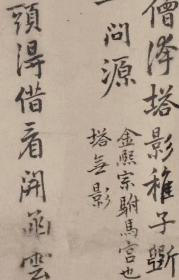 僧浄塔影稚子斵
一问源
金熙宗駙馬宮也
塔無影
頭得借看開函雲